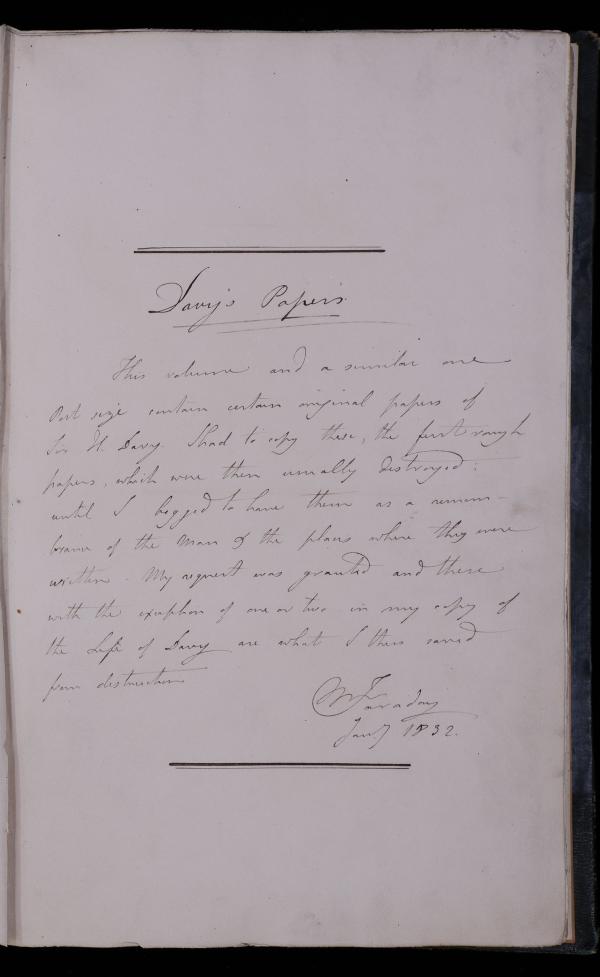 Davy's Papers.
This volume and a similar one
Post size contain certain original papers of
Sir H. Davy. I had to copy these, the first rough
papers, which were then usually destroyed;
until I begged to have them as a remem-
brance of the Man & the places where they were
written. My request was granted and these
with the exception of one or two in my copy of
the Life of Davy are what I then saved
from destruction
M Faraday
Jany 1832.